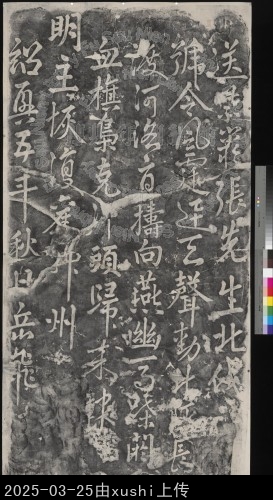 送紫巖張先生北伐
號令風霆迅天聲動北陬長
渡河洛直擣向燕幽馬蹀閼
血旗梟克汗頭歸來報
明主恢復舊神州
紹興五年秋日岳飛
2025-03-25由xushi上传